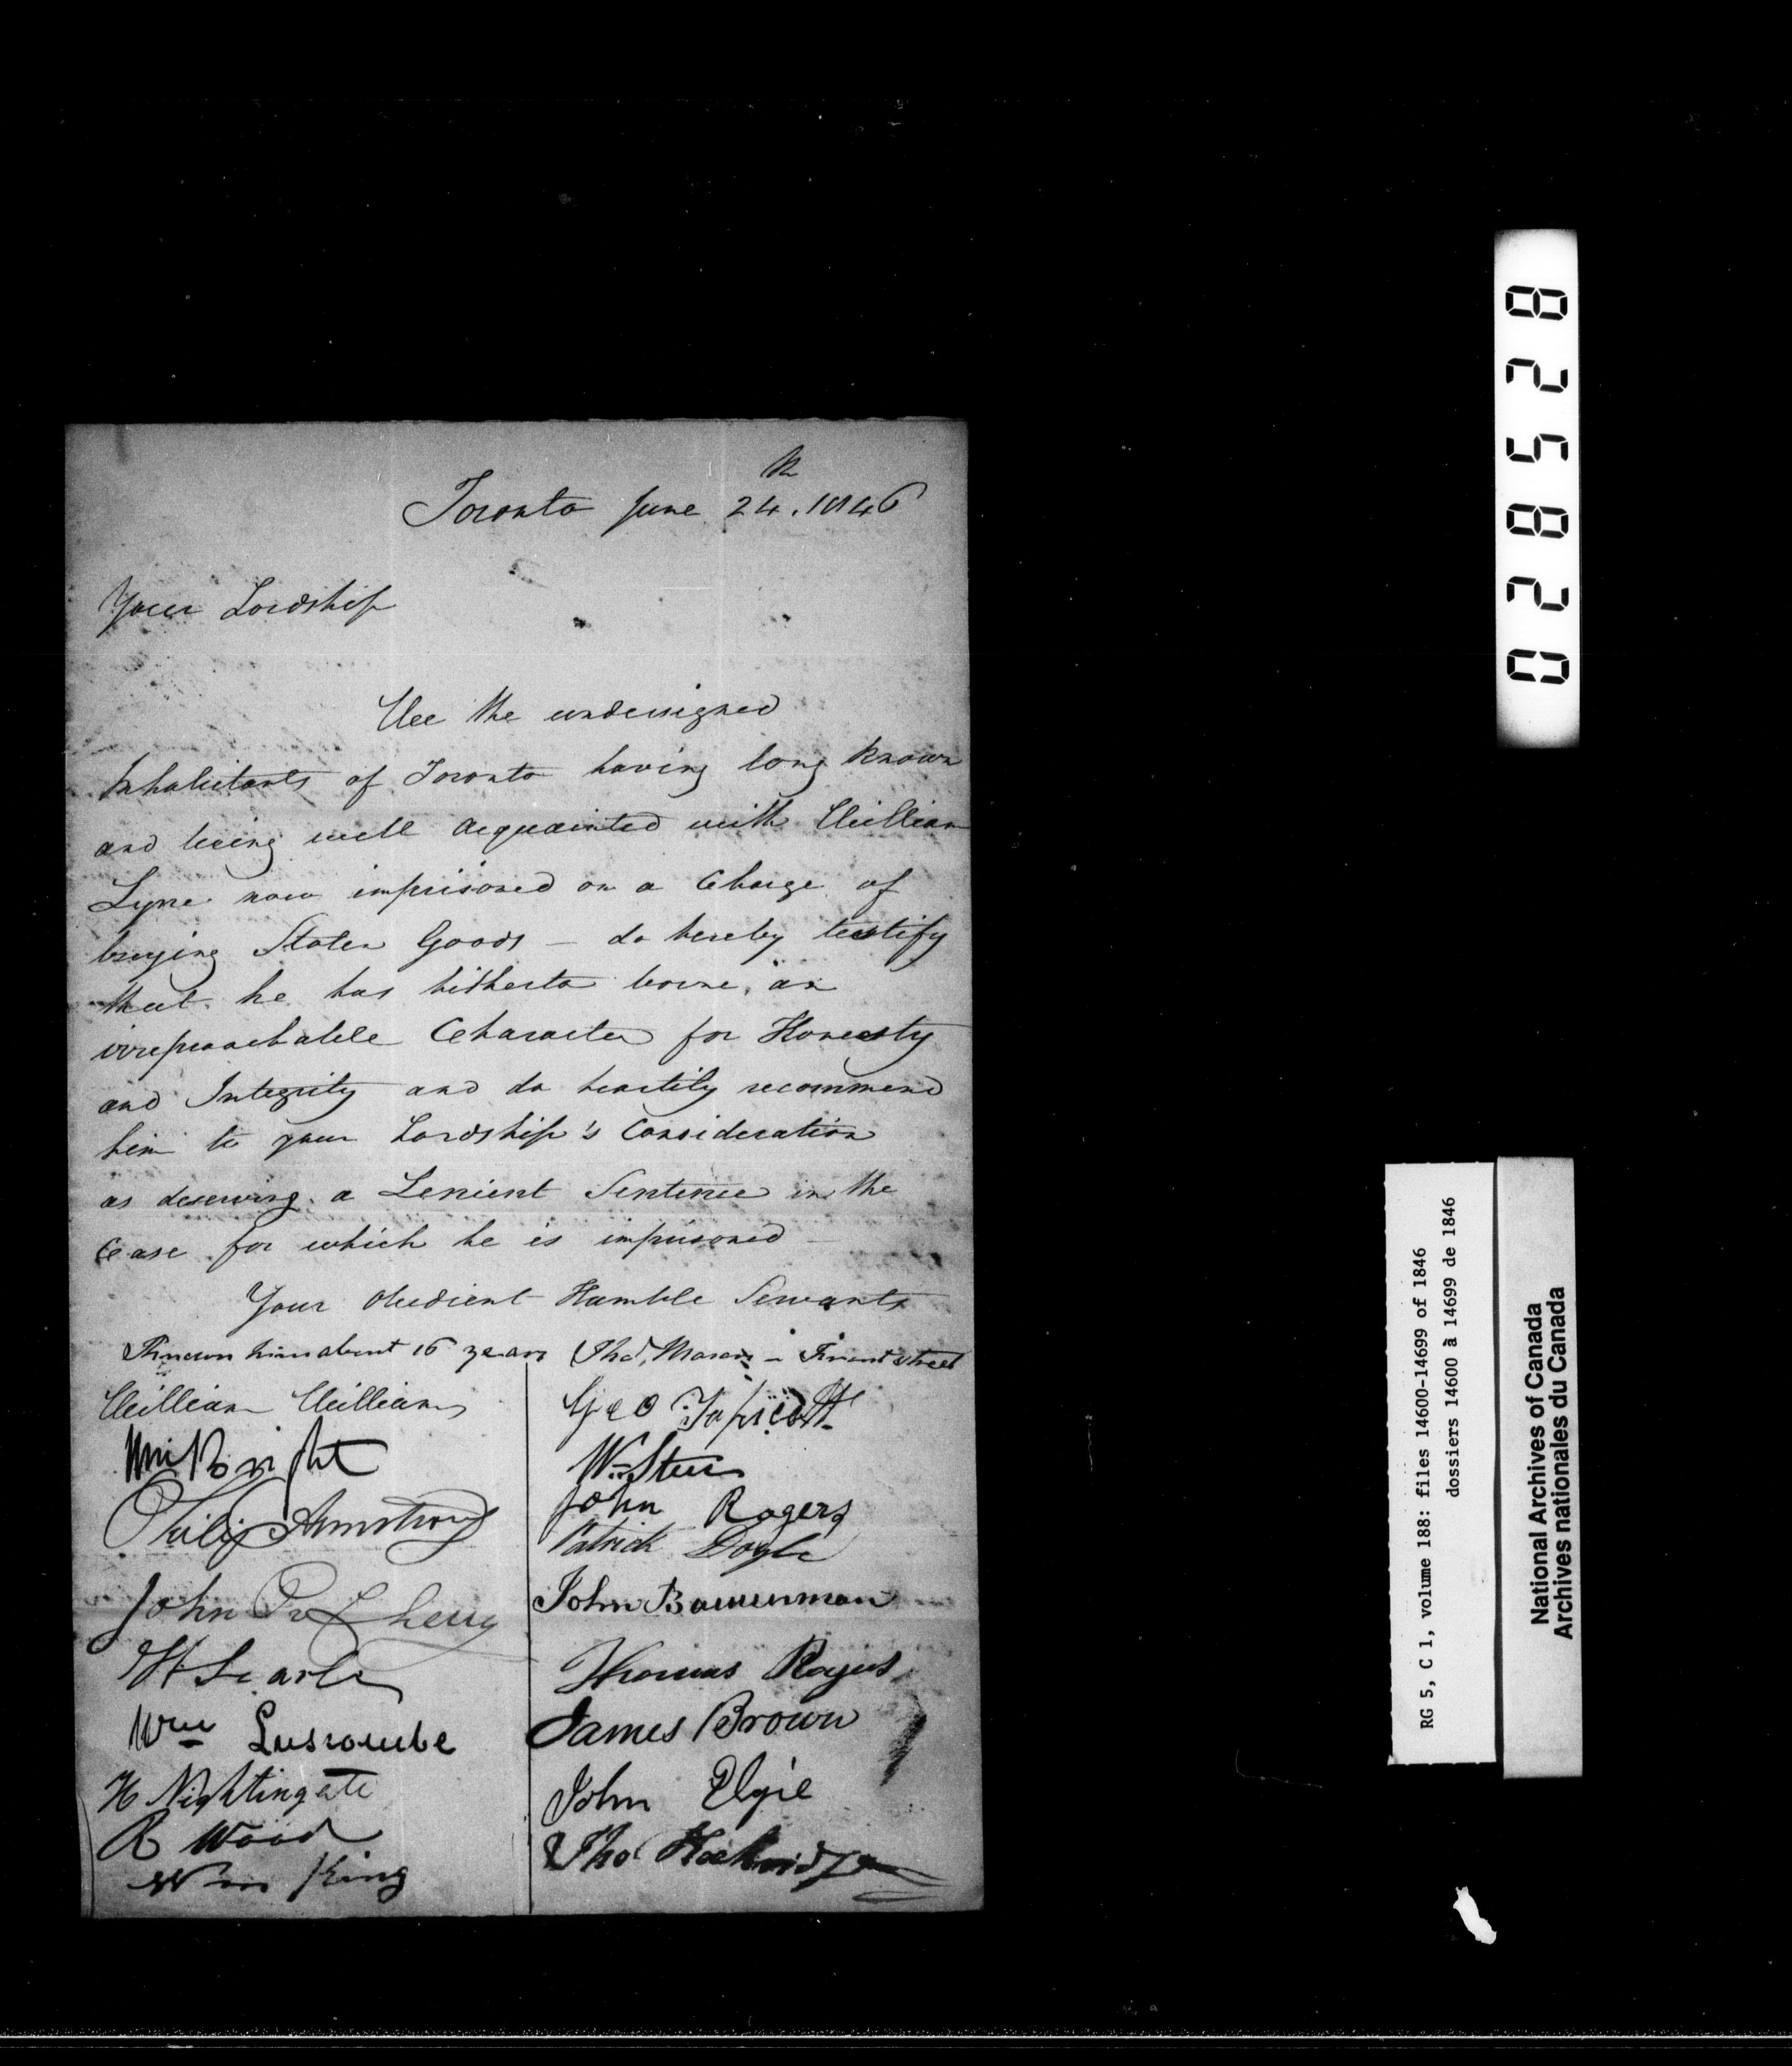 Toronto June 24th. 1846
Your Lordship
Wee the undersigned
Inhabitants of Toronto having long known
and being well acquainted with William
Lyne now imprisoned on a Charge of
buying Stolen Goods – do hereby testify
that he has hitherto borne, an
irreproachable Character for Honesty
and Integrity and do heartily recommend
him to your Lordship's Consideration
as deserving a Lenient Sentence in the
Case for which he is imprisoned –
Your Obedient Humble Servants
Known him about 16 years Thos, Mason – Front street
William Williams
Wm Bright
Philip Armstrong
John Cherry
H Searle
Wm Luscombe
H Nightingale
R Wood
Wm King
Geo Tapscott
Wm Steer
John Rogers
Patrick Doyle
John Bowerman
Thomas Rogers
James Brown
John Elgie
Thos
028528
RG 5, C 1, volume 188: files 14600-14699 of 1846
dossiers 14600 à 14699 de 1846
National Archives of Canada
Archives nationales du Canada